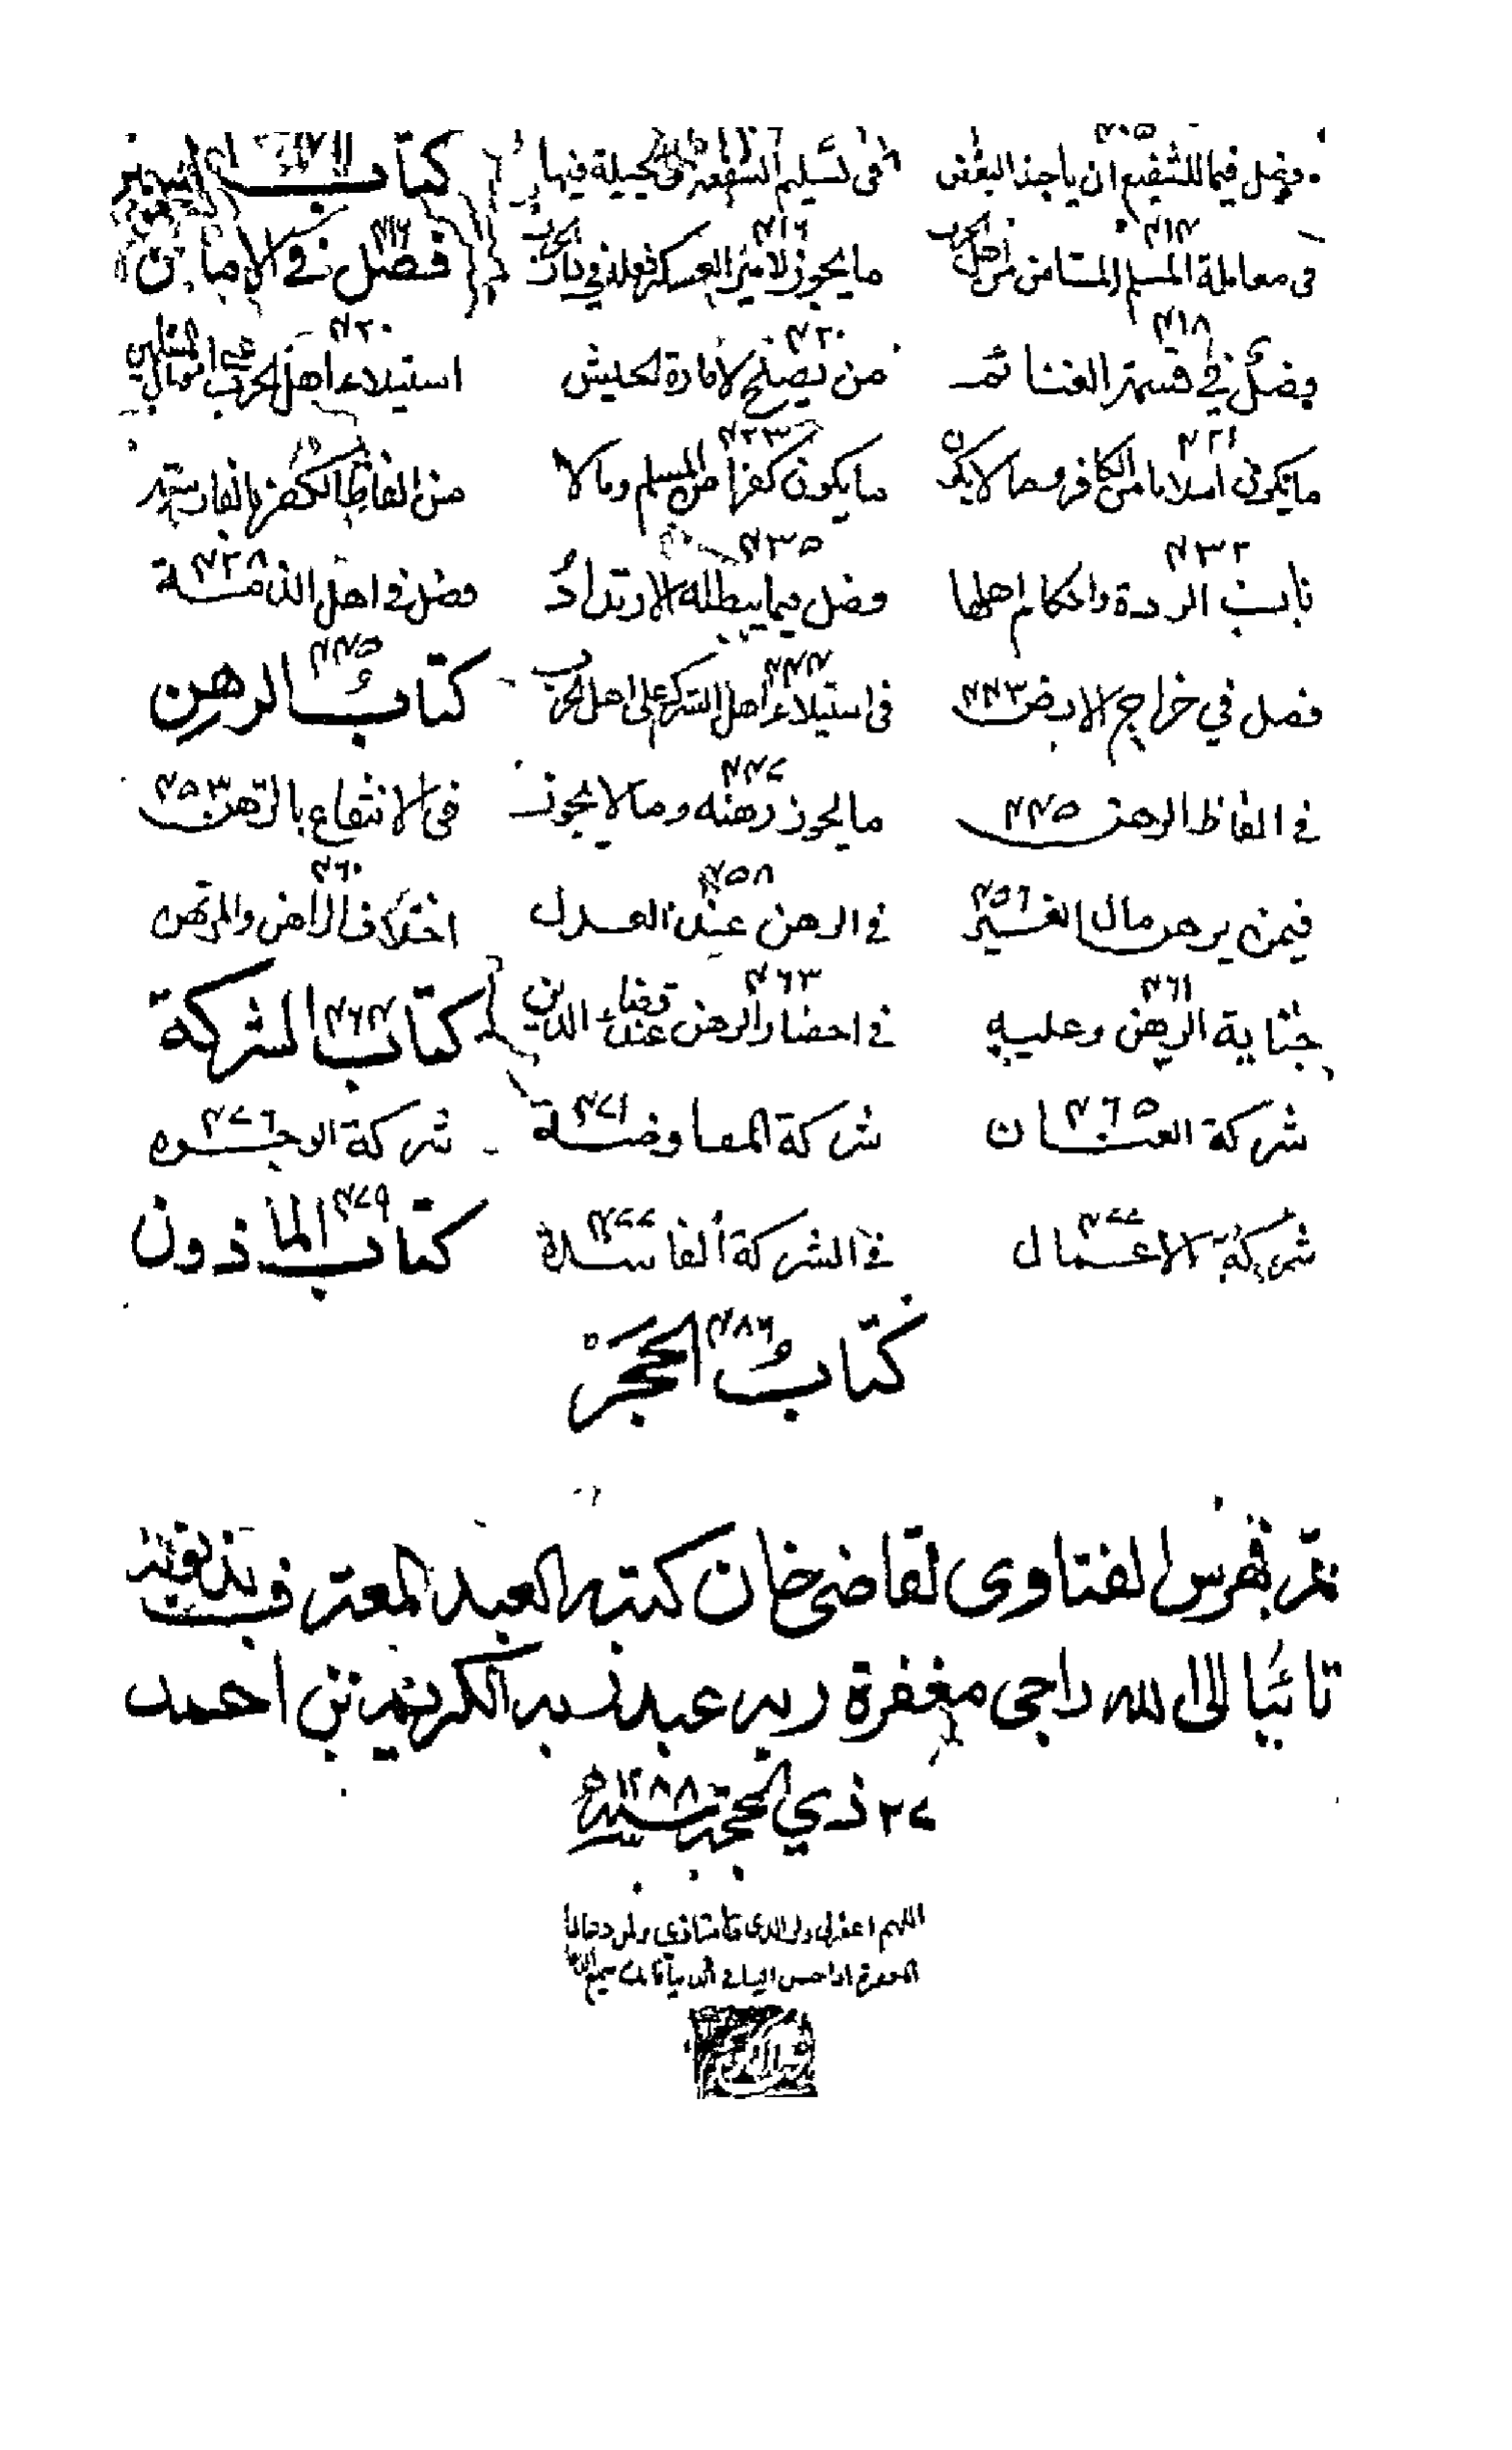 فصل فيما للشفيع ان ياخذ البعض في تسليم الشفعة والحيلة فيها كتاب السير
٤١٣ في معاملة المسلم المستامن من اهل الحرب ٤١٦ ما يجوز لامير العسكر فعله في دار الحرب ٤١٦ فصل في الامان
٤١٨ فصل في قسمة الغنائم ٤٢٠ من يصلح لامارة الجيش ٤٢٠ استيلاء اهل الحرب على اموال المسلمين
٤٢١ ما يكون اسلاما من الكافر وما لا يكون ٤٢٣ ما يكون كفرا من المسلم وما لا من الفاظ الكفر بالفارسية
٤٣٢ باب الردة واحكام اهلها ٤٣٥ فصل فيما يبطله الارتداد ٤٣٨ فصل في اهل الذمة
فصل في خراج الارض ٤٤٣ ٤٤٤ في استيلاء اهل الشرك على اهل الحرب كتاب الرهن ٤٤٥
في الفاظ الرهن ٤٤٥ ٤٤٧ ما يجوز رهنه وما لا يجوز في الانتفاع بالرهن ٤٥٣
فيمن يرهن مال الغير ٤٥٦ ٤٥٨ في الرهن عند العدل ٤٦٠ اختلاف الراهن والمرتهن
٤٦١ جناية الرهن وعليه ٤٦٣ في احضار الرهن عند قضاء الدين كتاب الشركة ٤٦٤
شركة العنان ٤٦٥ شركة المفاوضة ٤٧١ شركة الوجوه ٤٧٦
شركة الاعمال ٤٧٧ في الشركة الفاسدة ٤٧٧ كتاب الماذون ٤٧٩
كتاب الحجر ٤٨٦
تم فهرس الفتاوى لقاضى خان كتبه العبد المعترف بذنوبه
تائبا الى الله راجى مغفرة ربه عبد ربه الكريم بن احمد
٢٧ ذي الحجة سنة ١٢٨٨ه
اللهم اغفر لي ولوالدي ولاستاذي ولمن دعا لنا